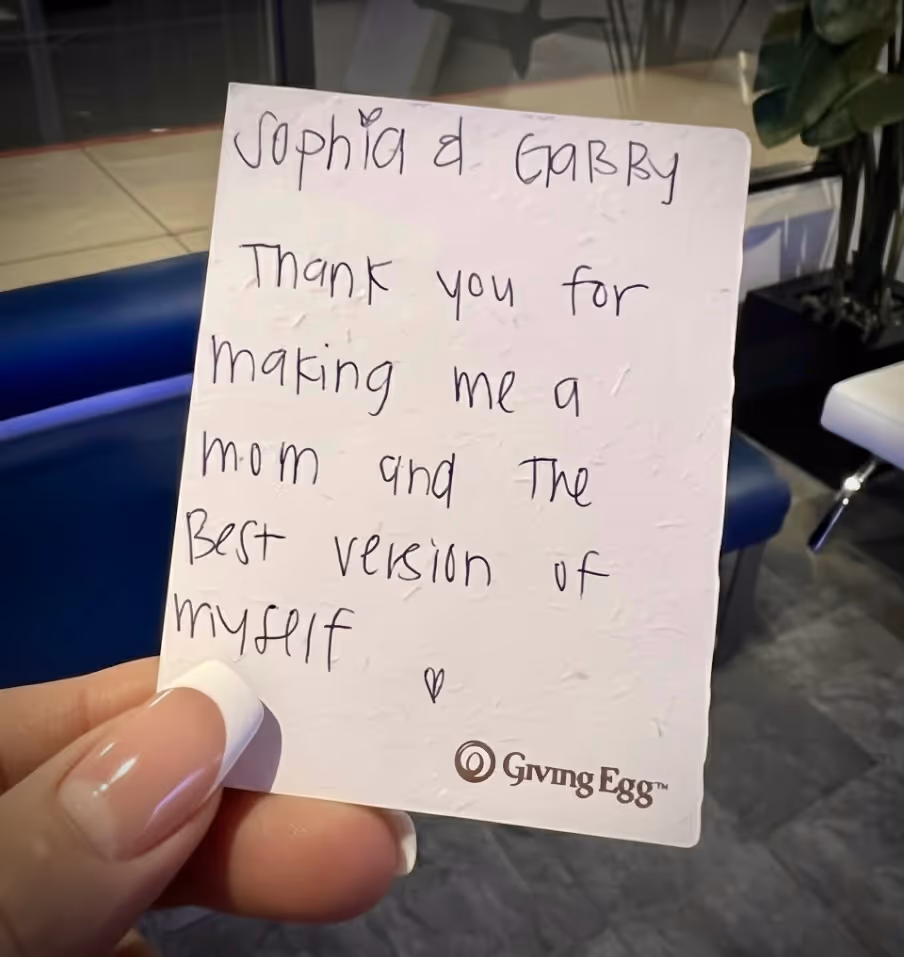 Sophia & GABBY
Thank you for
making me a
mom and The
Best version of
myself
Giving Egg™